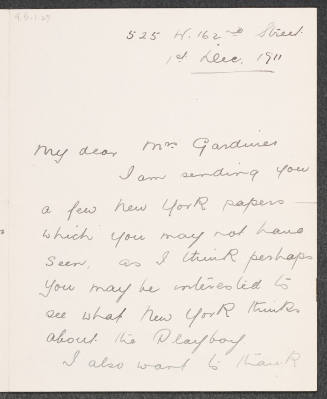 525 W. 162nd Street.
1st Dec. 1911
My dear Mrs Gardiner
I am sending you
a few New York papers —
which you may not have
seen, as I think perhaps
you may be interested to
see what New York thinks
about the Playboy
I also want to thank